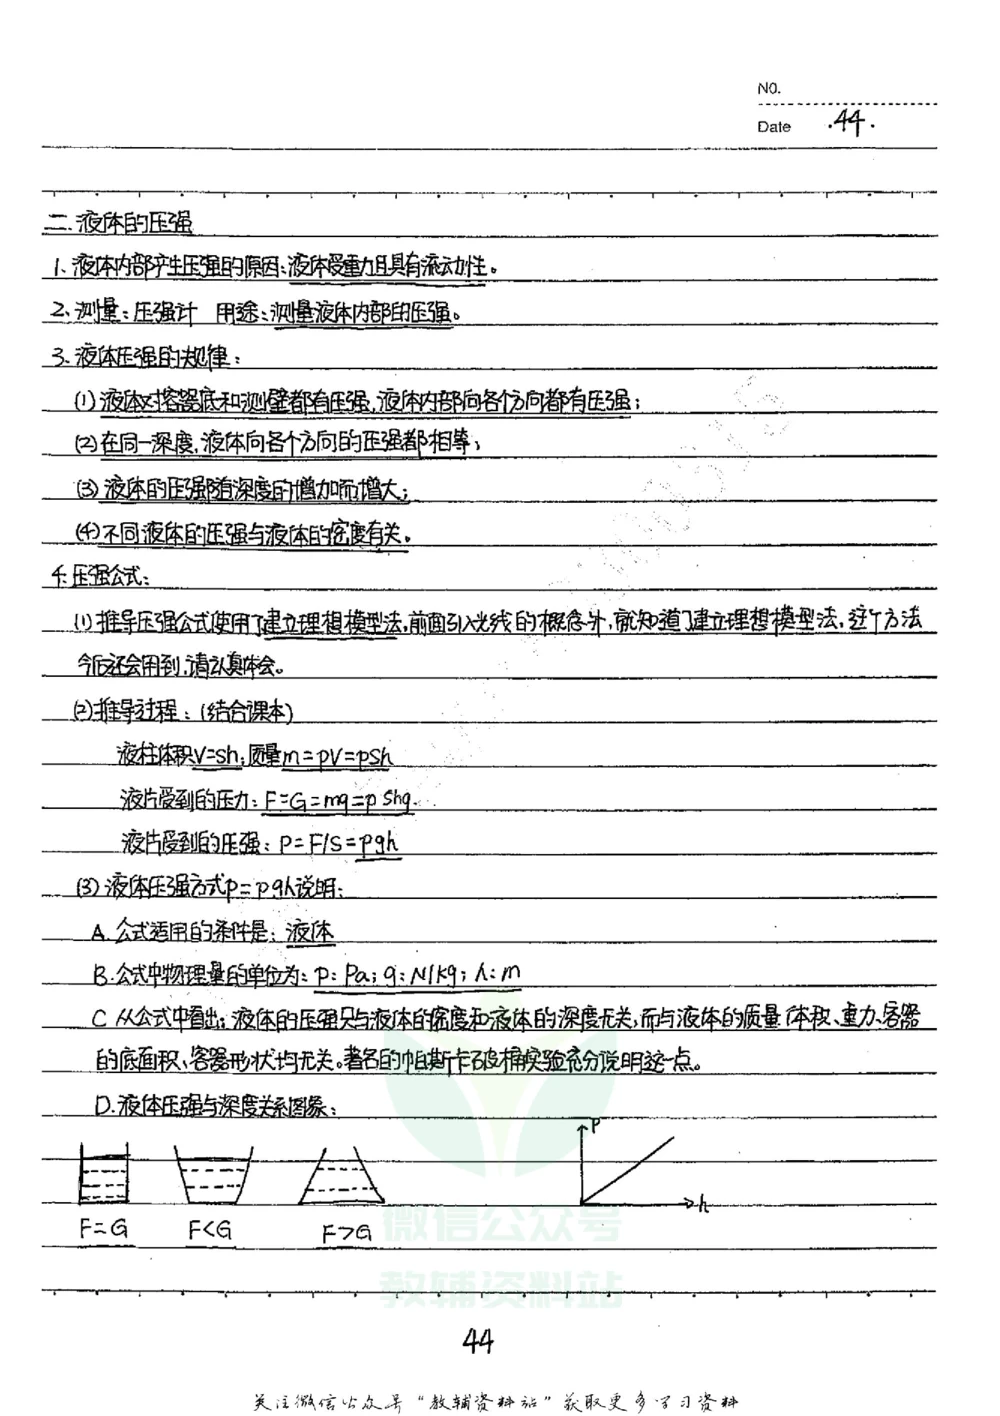 NO.
Date ·44·
二、液体的压强
1、液体内部产生压强的原因：液体受重力且具有流动性。
2、测量：压强计 用途：测量液体内部的压强。
3、液体压强的规律：
(1)液体对容器底和测壁都有压强，液体内部向各个方向都有压强；
(2)在同一深度，液体向各个方向的压强都相等；
(3)液体的压强随深度的增加而增大；
(4)不同液体的压强与液体的密度有关。
4.压强公式：
(1)推导压强公式使用了建立理想模型法，前面引入光线的概念外，就知道了建立理想模型法，这个方法
今后还会用到，请认真体会。
(2)推导过程：(结合课本)
液柱体积V=Sh；质量m=ρV=ρSh
液片受到的压力：F=G=mg=ρShg.
液片受到的压强：P=F/S=ρgh
(3)液体压强方式p=ρgh说明：
A.公式适用的条件是：液体
B.公式中物理量的单位为：P：Pa；g：N/kg；h：m
C从公式中看出：液体的压强只与液体的密度和液体的深度无关，而与液体的质量、体积、重力、容器
的底面积、容器形状均无关。著名的帕斯卡破桶实验充分说明这一点。
D.液体压强与深度关系图象：
P
h
F=G F<G F>G
微信公众号
教辅资料站
44
关注微信公众号“教辅资料站”获取更多学习资料